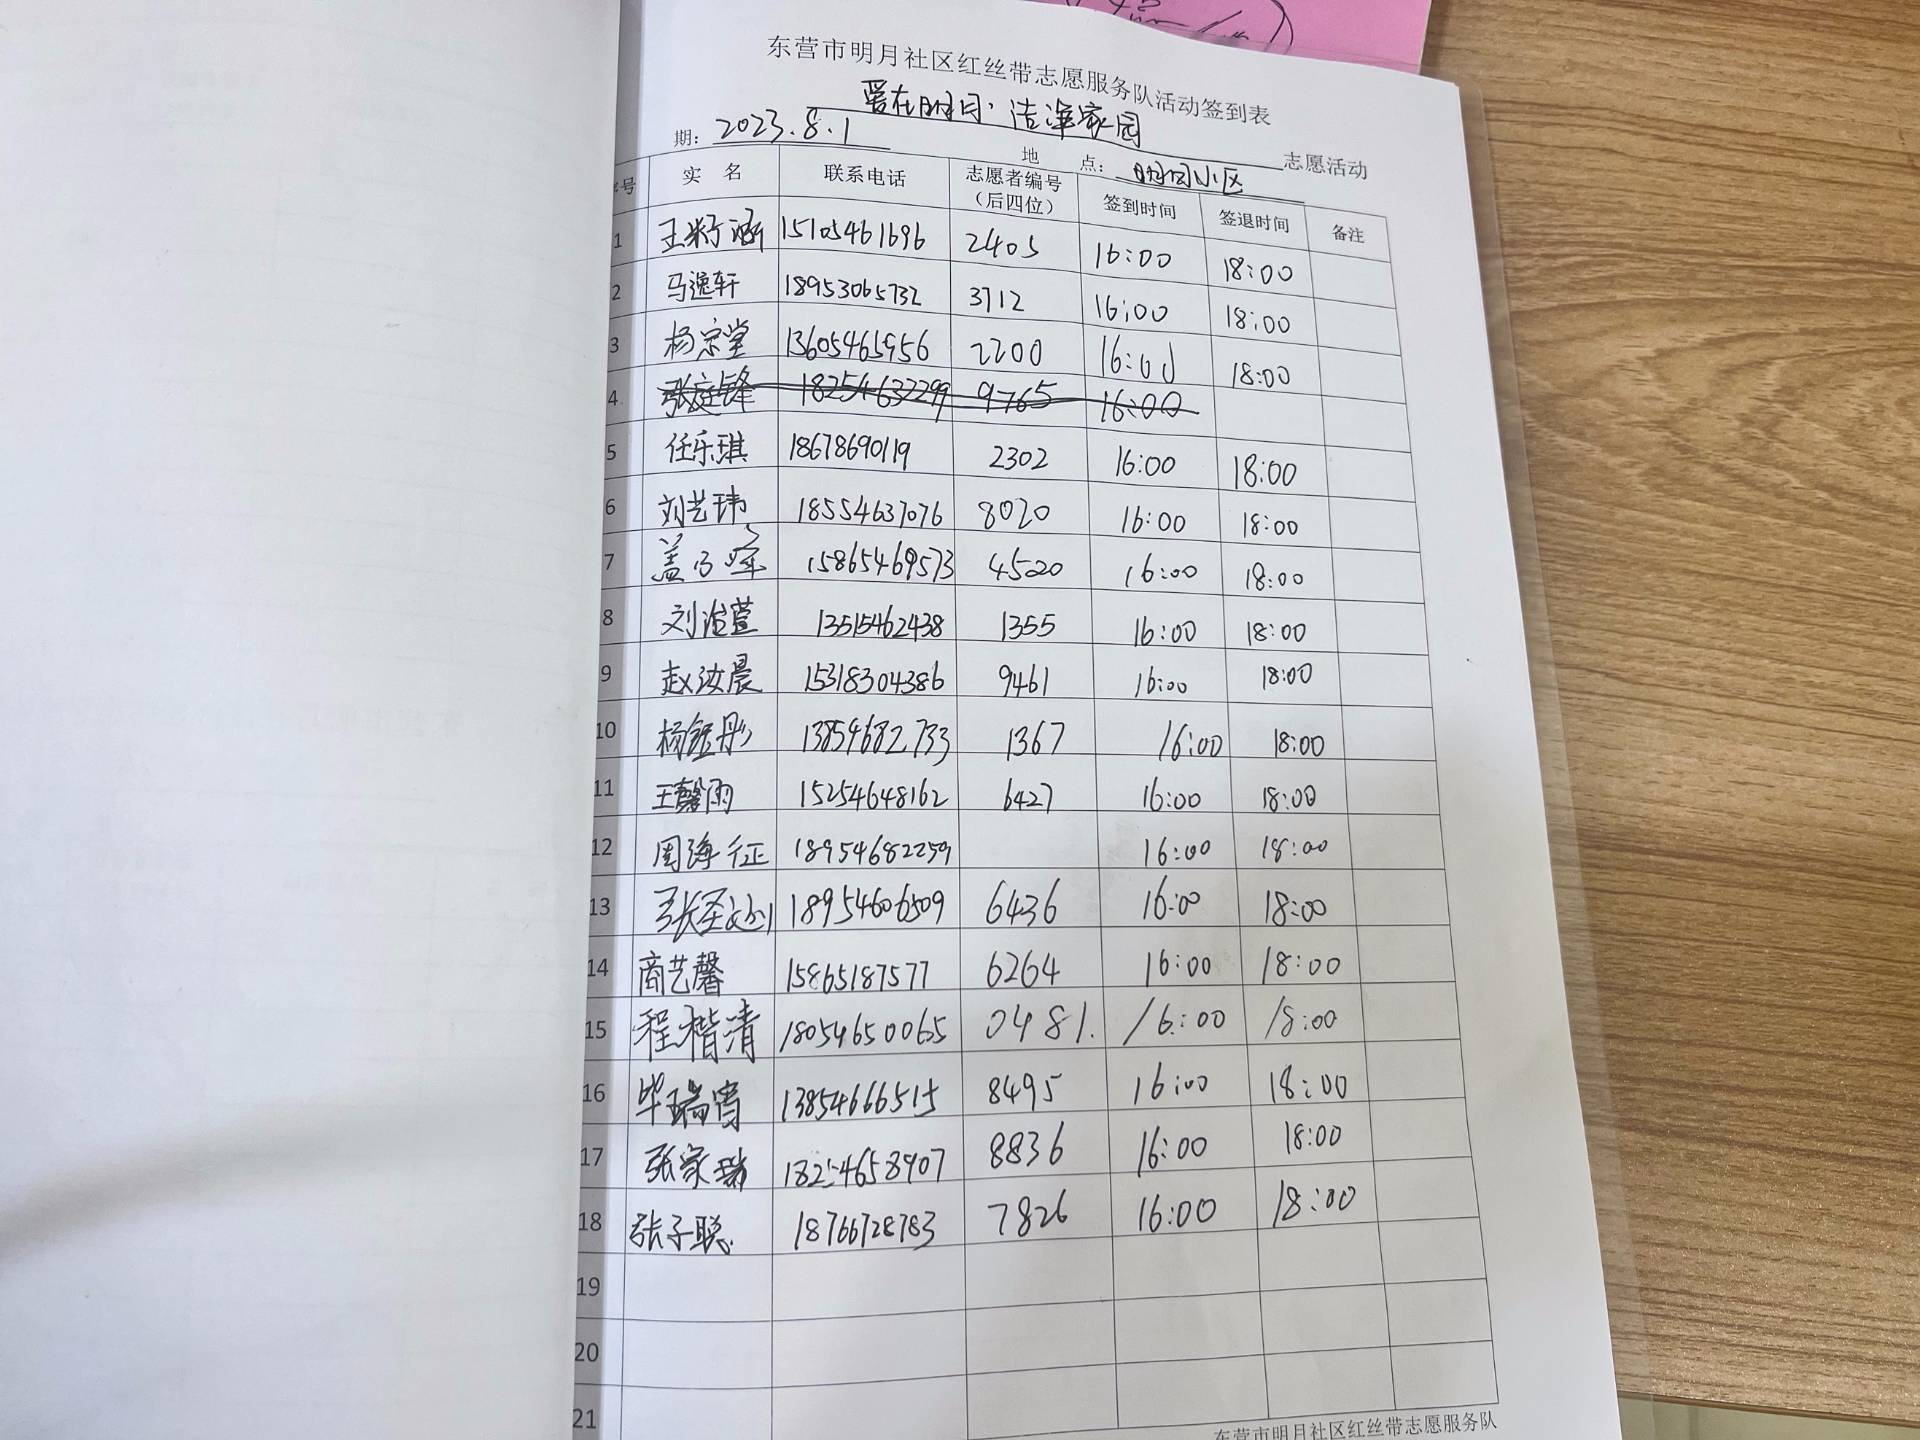 东营市明月社区红丝带志愿服务队活动签到表
爱在明月·洁净家园 志愿活动
期: 2023.8.1 地 点: 明月小区
序号 实 名 联系电话 志愿者编号（后四位） 签到时间 签退时间 备注
1 王籽涵 15105461696 2405 16:00 18:00
2 马逸轩 18953065732 3712 16:00 18:00
3 杨宗堂 13605465956 2200 16:00 18:00
4 张庭锋 18254632299 9765 16:00
5 任乐琪 18678690119 2302 16:00 18:00
6 刘艺玮 18554637076 8020 16:00 18:00
7 盖 15865469573 4520 16:00 18:00
8 刘萱 13515462438 1355 16:00 18:00
9 赵汝晨 15318304386 9461 16:00 18:00
10 杨彤 13854682733 1367 16:00 18:00
11 王馨雨 15254648162 6427 16:00 18:00
12 周海征 18954682259 16:00 18:00
13 张圣 18954606509 6436 16:00 18:00
14 商艺馨 15865187577 6264 16:00 18:00
15 程楷清 18054650065 0481. 16:00 18:00
16 毕瑞霄 13854666515 8495 16:00 18:00
17 张家瑞 18254658907 8836 16:00 18:00
18 张子聪 18766728783 7826 16:00 18:00
19
20
21
东营市明月社区红丝带志愿服务队